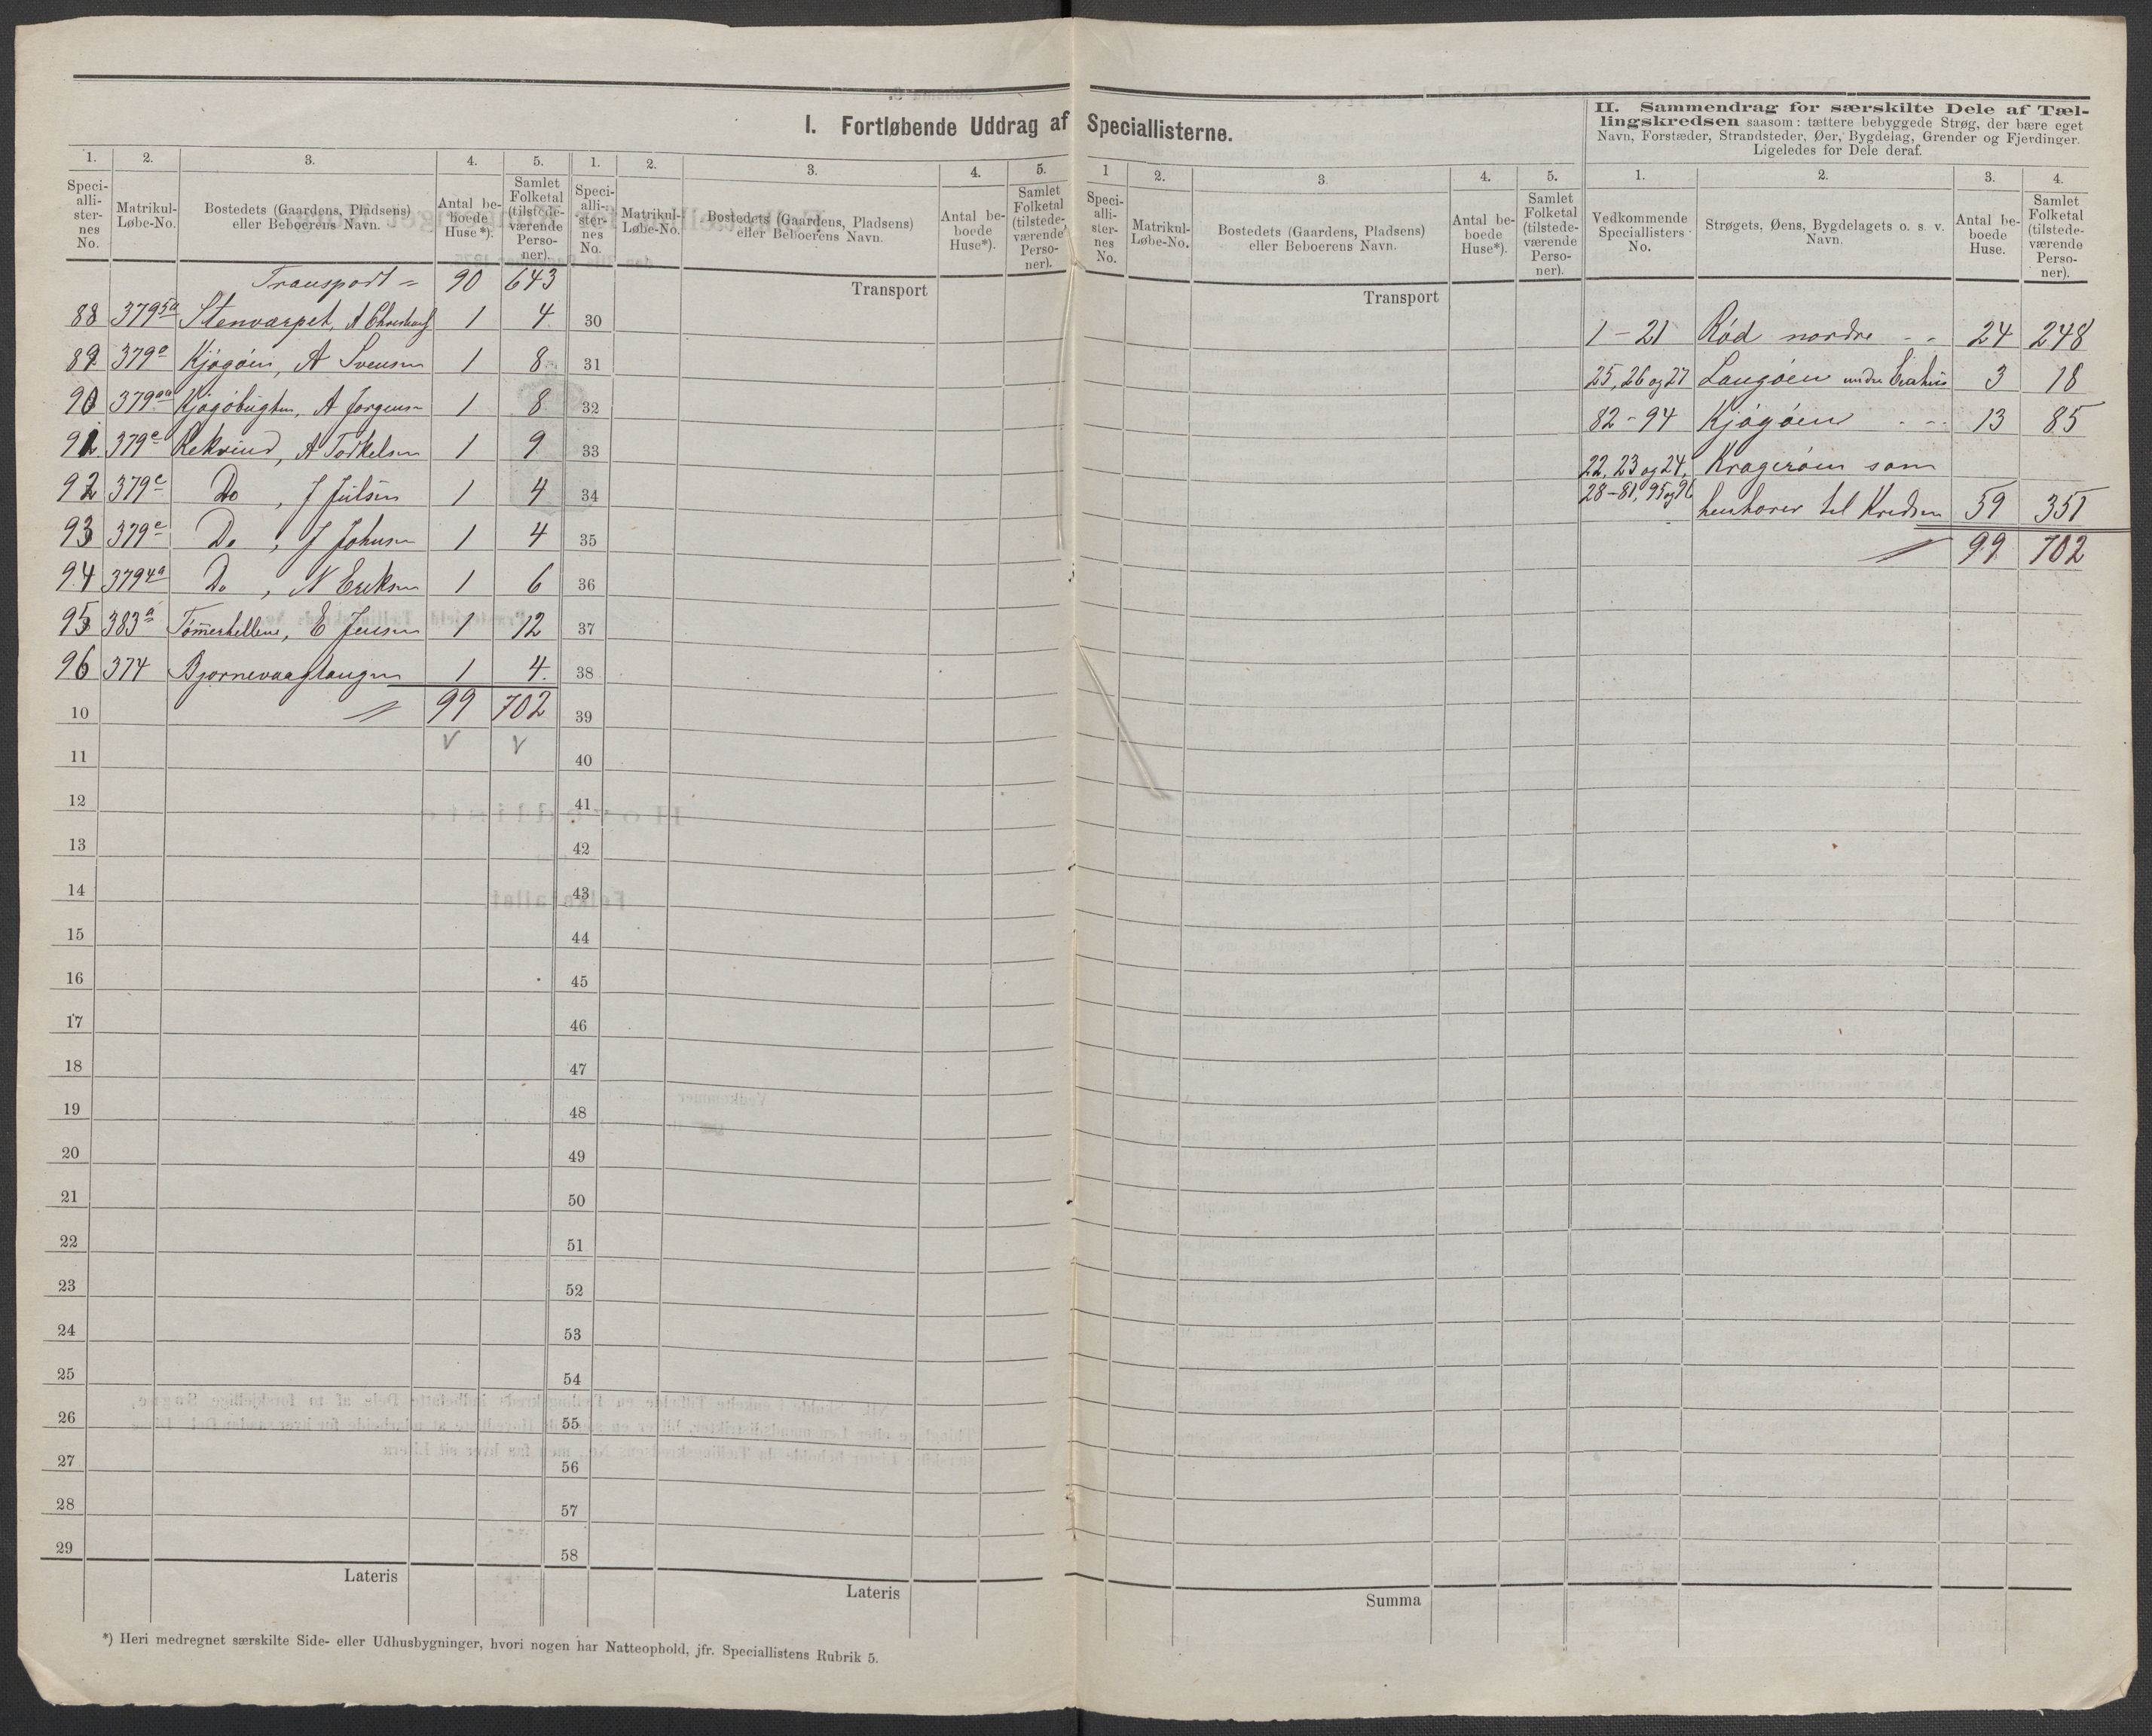 I. Fortløbende Uddrag af Speciallisterne.
1. 2. 3. 4. 5.
Speci-alli-ster-nes No. Matrikul-Løbe-No. Bostedets (Gaardens, Pladsens) eller Beboerens Navn. Antal be-boede Huse*). Samlet Folketal (tilstede-værende Perso-ner).
Transport = 90 643
88 379 5a Stenvarpet, A 1 4
89 379 a Kjøgøen, A Svensen 1 8
90 379 aa Kjøgøbugten, A Jørgensen 1 8
91 379 e Rekvind, A Torkelsen 1 9
92 379 e Do, J Julsen 1 4
93 379 e Do, J Johnsen 1 4
94 379 4a Do, N Eriksen 1 6
95 383 a Tømmerhellene, E Jensen 1 12
96 374 Bjørnevaagtangen 1 4.
10 99 702
11
12
13
14
15
16
17
18
19
20
21
22
23
24
25
26
27
28
29
Lateris
*) Heri medregnet særskilte Side- eller Udhusbygninger, hvori nogen har Natteophold, jfr. Speciallistens Rubrik 5.
1. 2. 3. 4. 5.
Speci-alli-ster-nes No. Matrikul-Løbe-No. Bostedets (Gaardens, Pladsens) eller Beboerens Navn. Antal be-boede Huse*). Samlet Folketal (tilstede-værende Perso-ner).
Transport
30
31
32
33
34
35
36
37
38
39
40
41
42
43
44
45
46
47
48
49
50
51
52
53
54
55
56
57
58
Lateris
1 2. 3. 4. 5.
Speci-alli-ster-nes No. Matrikul-Løbe-No. Bostedets (Gaardens, Pladsens) eller Beboerens Navn. Antal be-boede Huse*). Samlet Folketal (tilstede-værende Perso-ner).
Transport
Summa
II. Sammendrag for særskilte Dele af Tæl-
lingskredsen saasom: tættere bebyggede Strøg, der bære eget
Navn, Forstæder, Strandsteder, Øer, Bygdelag, Grender og Fjerdinger.
Ligeledes for Dele deraf.
1. 2. 3. 4.
Vedkommende Speciallisters No. Strøgets, Øens, Bygdelagets o. s. v. Navn. Antal be-boede Huse. Samlet Folketal (tilstede-værende Perso-ner).
1-21 Rød nordre - - 24 248
25, 26 og 27 Langøen 3 18
82-94 Kjøgøen - - 13 85
22, 23 og 24, Kragerøen som
28-81, 95 og 96 henhører til Kredsen 59 351
99 702